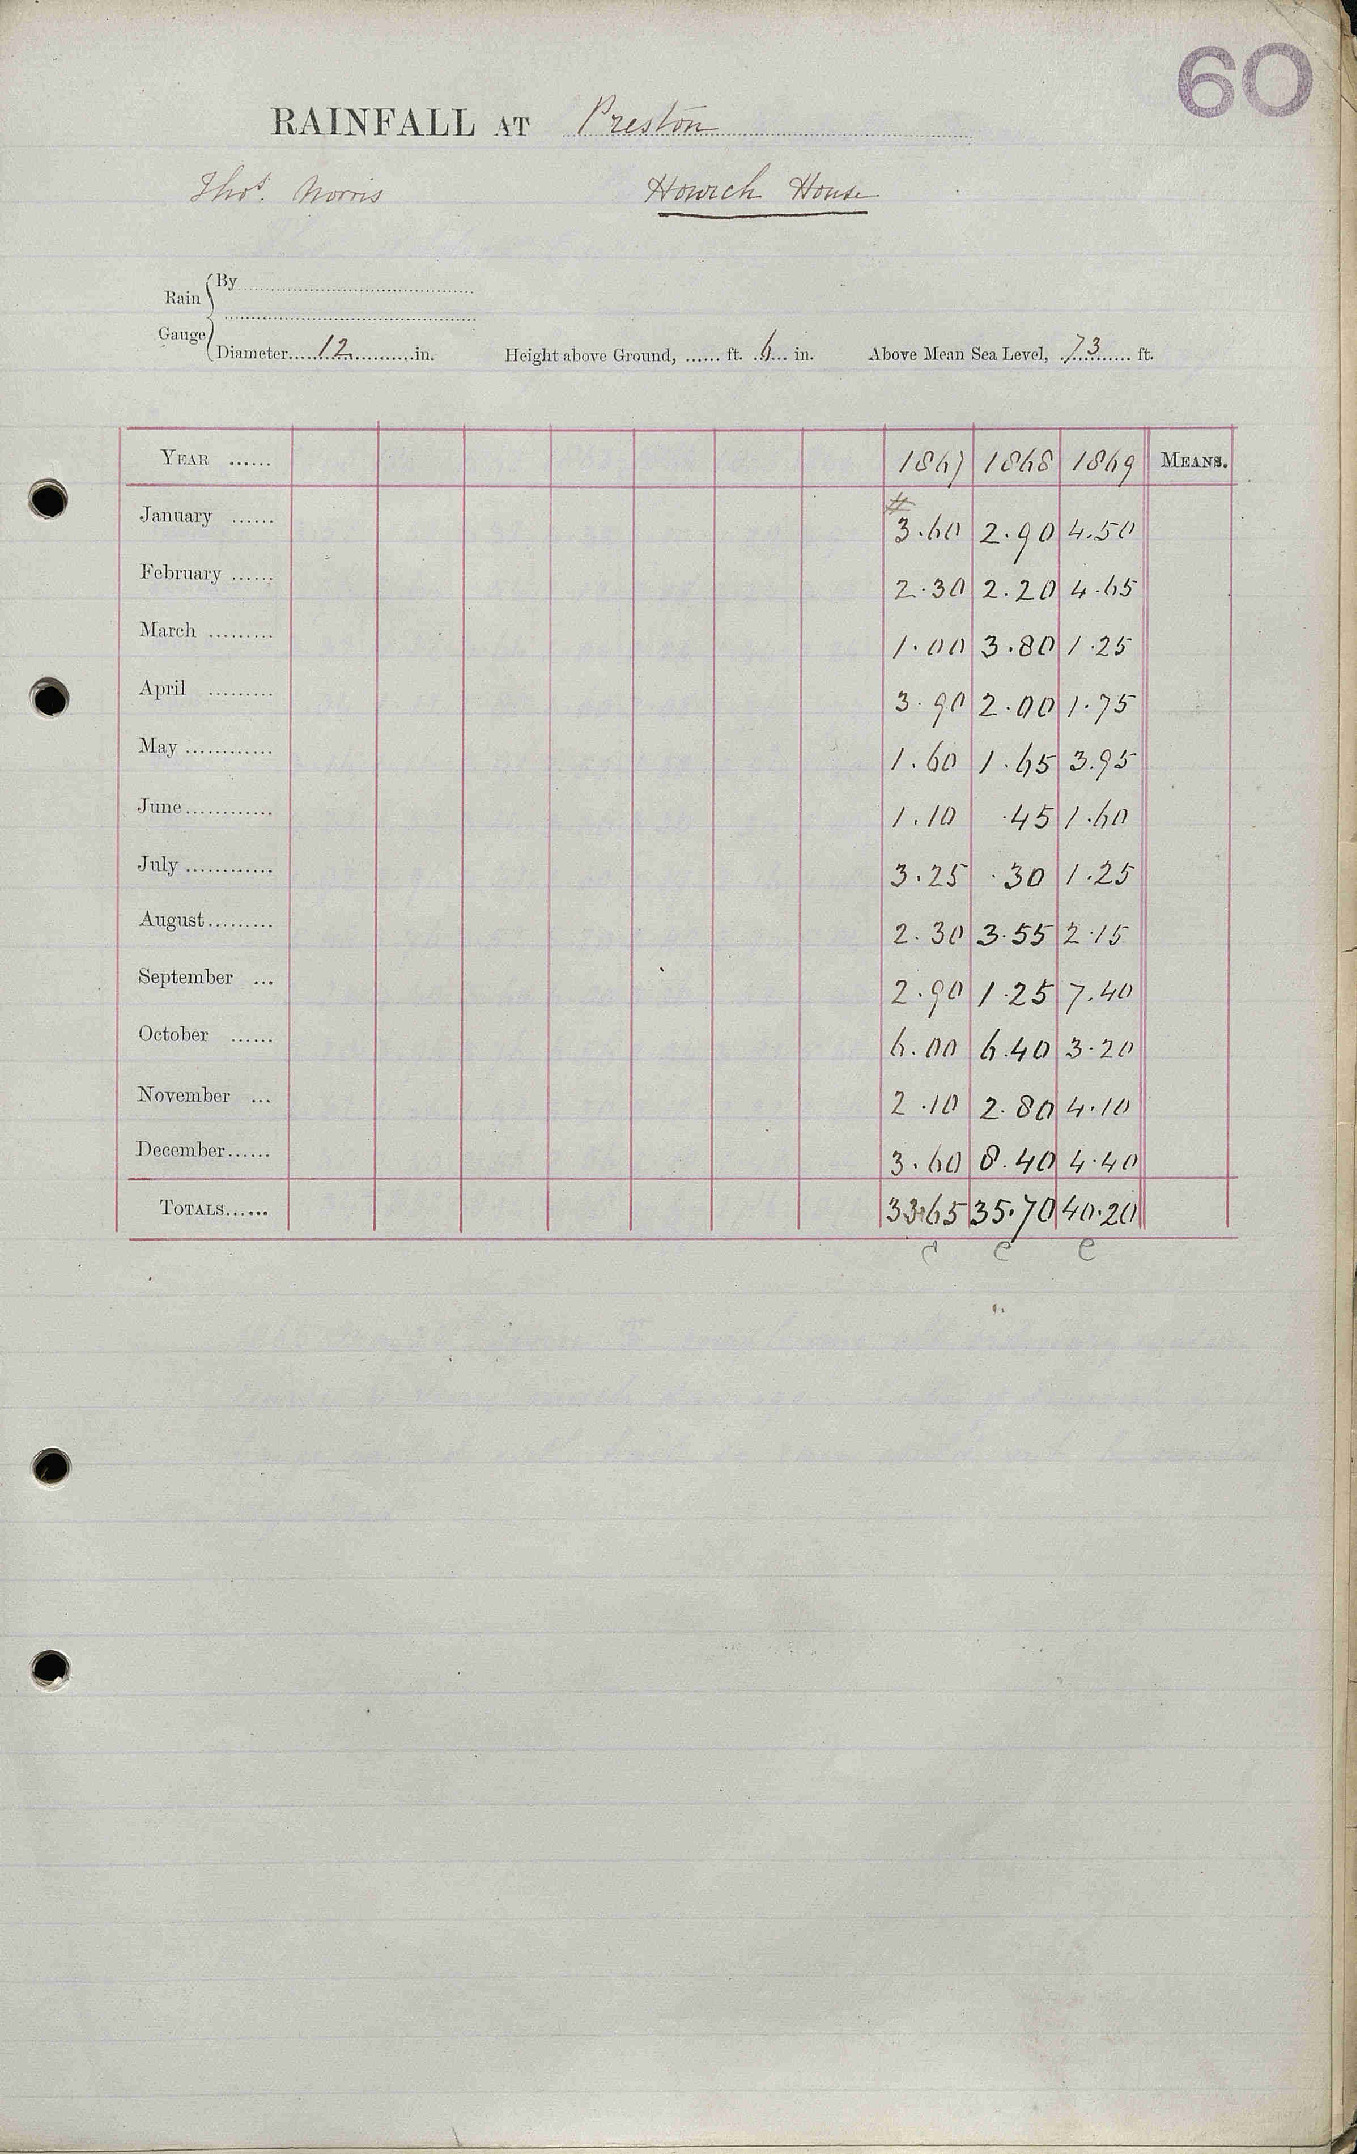 60
RAINFALL AT Preston
Thos. Norris Howick House
Rain Gauge
By
Diameter 12 in. Height above Ground, ...... ft. 6 in. Above Mean Sea Level, 73 ft.
YEAR ...... 1867 1868 1869 MEANS.
January ...... 3.60 2.90 4.50
February ...... 2.30 2.20 4.65
March ......... 1.00 3.80 1.25
April ......... 3.90 2.00 1.75
May ............ 1.60 1.65 3.95
June ............ 1.10 .45 1.60
July ............ 3.25 .30 1.25
August ......... 2.30 3.55 2.15
September ... 2.90 1.25 7.40
October ...... 6.00 6.40 3.20
November ... 2.10 2.80 4.10
December ...... 3.60 8.40 4.40
TOTALS ...... 33.65 35.70 40.20
c e e